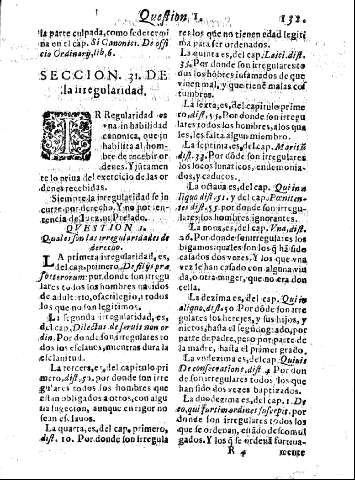 Question I.
132.
la parte culpada, como se determi
na en el cap. Si Canonici. De offi
cio Ordinarij, lib. 6.
SECCION. 31. DE
la irregularidad.
IRREgularidad es
vna inhabilidad
canonica, que in
habilita al hom-
bre de recebir or
denes. Y juntamen
te le priua del exercicio de las or
denes recebidas.
Siempre la irregularidad se in
curre por derecho, Y no por sen
tencia de Iuez, ni Prelado.
QVESTION I.
Quales son las irregularidades de
derecho.
LA primera irregularidad, es,
del cap. primero, De filijs pres
byterorum: por donde son irregu
lares todos los hombres nacidos
de adulterio, o sacrilegio, y todos
los que no son legitimos.
La segunda irregularidad, es,
del cap. Dilectus de seruis non or
din. Por donde son irregulares to
dos los esclauos, mientras dura la
esclauitud.
La tercera, es, del capitulo pri
mero, dist. 52. por donde son irre
gulares todos los hombres que
estan obligados a otros, con algu
na sugecion, aunque en rigor no
sean esclauos.
La quarta, es, del cap. primero,
dist. 10. Por donde son irregula
res los que no tienen edad legiti
ma para ser ordenados.
La quinta es, del cap. Laici. dist.
33. Por donde son irregulares to
dos los hõbres infamados de que
viuen mal, y que tienē malas cos
tumbres.
La sexta, es, del capitulo prime
ro, dist. 55. Por donde son irregu
lares todos los hombres, a los qua
les, les falta algun miembro.
La septima, es, del cap. Maritū
dist. 33. Por dōde son irregulares
los locos lunaticos, endemonia-
dos, y caducos.
La octaua es, del cap. Qui in a
liquo dist. 51. y del cap. Pœniten-
tes dist. 55. por donde son irregu-
lares los hombres ignorantes.
La nona, es, del cap. Vna, dist.
26. Por donde son irregulares los
bigamos quales son los q̃ hã sido
casados dos vezes. Y los que vna
vez se han casado con alguna viu
da, o otra muger, que no era don
cella.
La dezima es, del cap. Quicū
aliqua, dist. 50 Por dōde son irre
gulares los herejes, y sus hijos, y
nietos, hasta el segūdo grado, por
parte de padre, pero por parte de
la madre, hasta el primer grado.
La vndezima es, del cap. Quiuis
De consecratione, dist. 4 Por don
de son irregulares todos los que
han sido dos vezes baptizados.
La duodezima es, del cap. 1. De
eo, qui furtim ordines suscepit. por
donde son irregulares todos los
que se ordenan, estãdo descomul
gados. Y los q̃ se ordenã furtiua-
R 4
mente